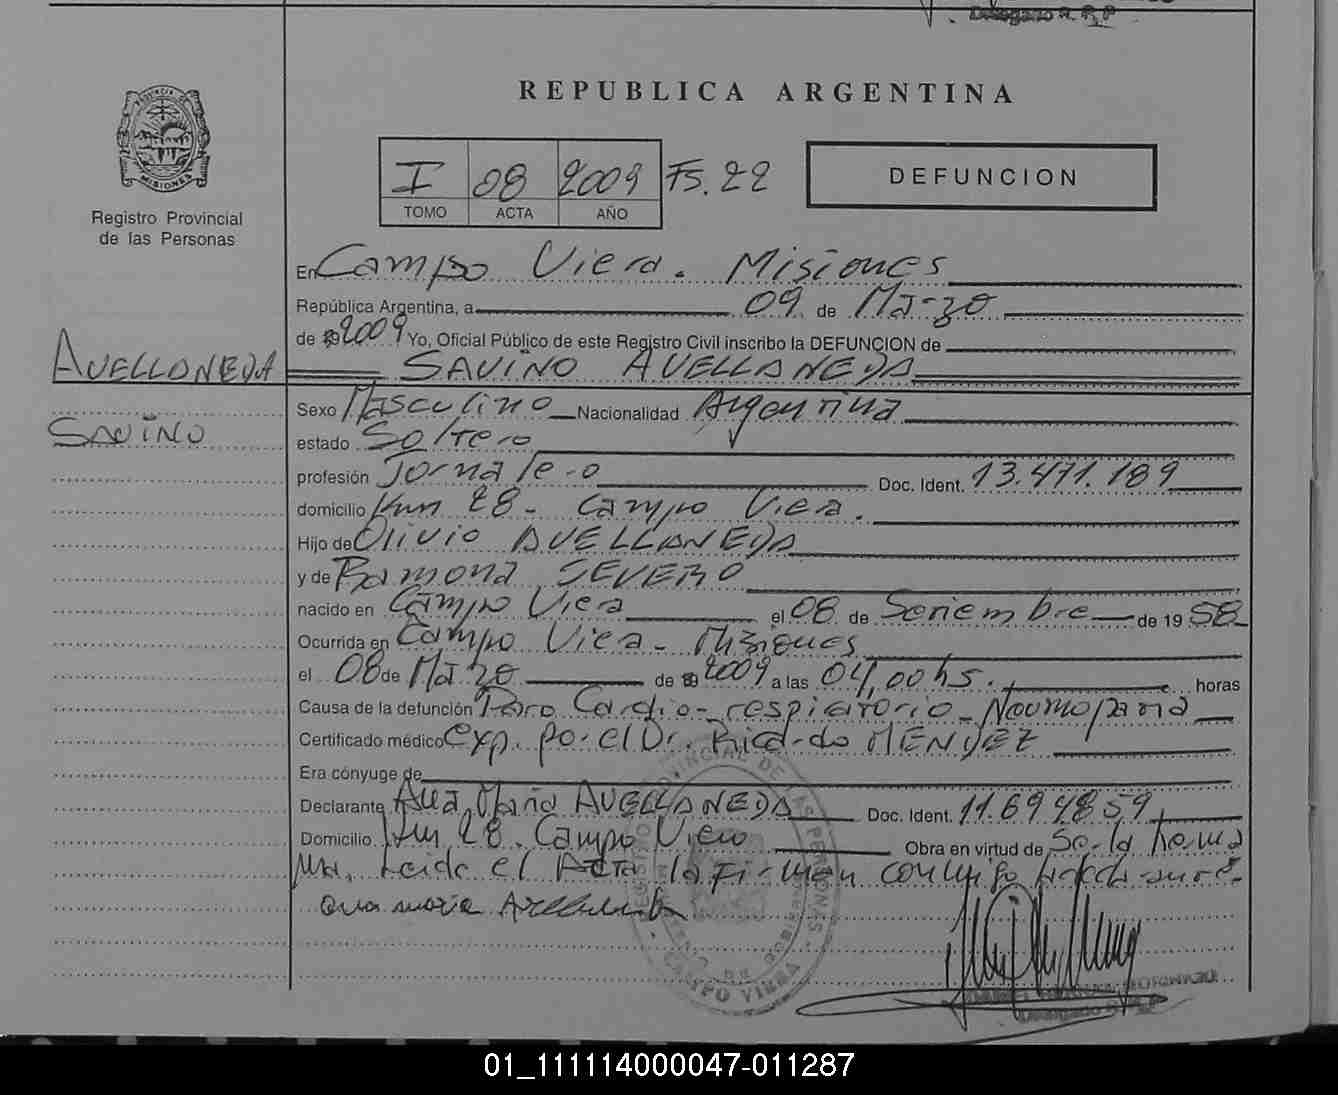 Delegado R. P. P.
REPUBLICA ARGENTINA
PROVINCIA DE MISIONES
Registro Provincial
de las Personas
I 08 2009 Fs. 22
TOMO ACTA AÑO
DEFUNCION
En Campo Viera. Misiones
República Argentina, a 09 de Marzo
de 2009 Yo, Oficial Público de este Registro Civil inscribo la DEFUNCION de
AVELLANEDA SAVINO AVELLANEDA
Sexo Masculino Nacionalidad Argentina
SAVINO
estado Soltero
profesión Jornalero Doc. Ident. 13.471.189
domicilio Km 28 - Campo Viera.
Hijo de Olivio AVELLANEDA
y de Ramona SEVERO
nacido en Campo Viera el 08 de Setiembre de 1958
Ocurrida en Campo Viera - Misiones
el 08 de Marzo de 2009 a las 04,00 hs. horas
Causa de la defunción Paro Cardio-respiratorio - Neumopatia
Certificado médico exp. por el Dr. Ricardo MENDEZ
Era cónyuge de
Declarante Ana Maria AVELLANEDA Doc. Ident. 11.694.859
Domicilio Km 28. Campo Viera Obra en virtud de Ser la hermana
Leida el Acta la Firman conmigo
ana maria Avellaneda
REGISTRO PROVINCIAL DE LAS PERSONAS
CAMPO VIERA
Delegado R. P. P.
01_111114000047-011287